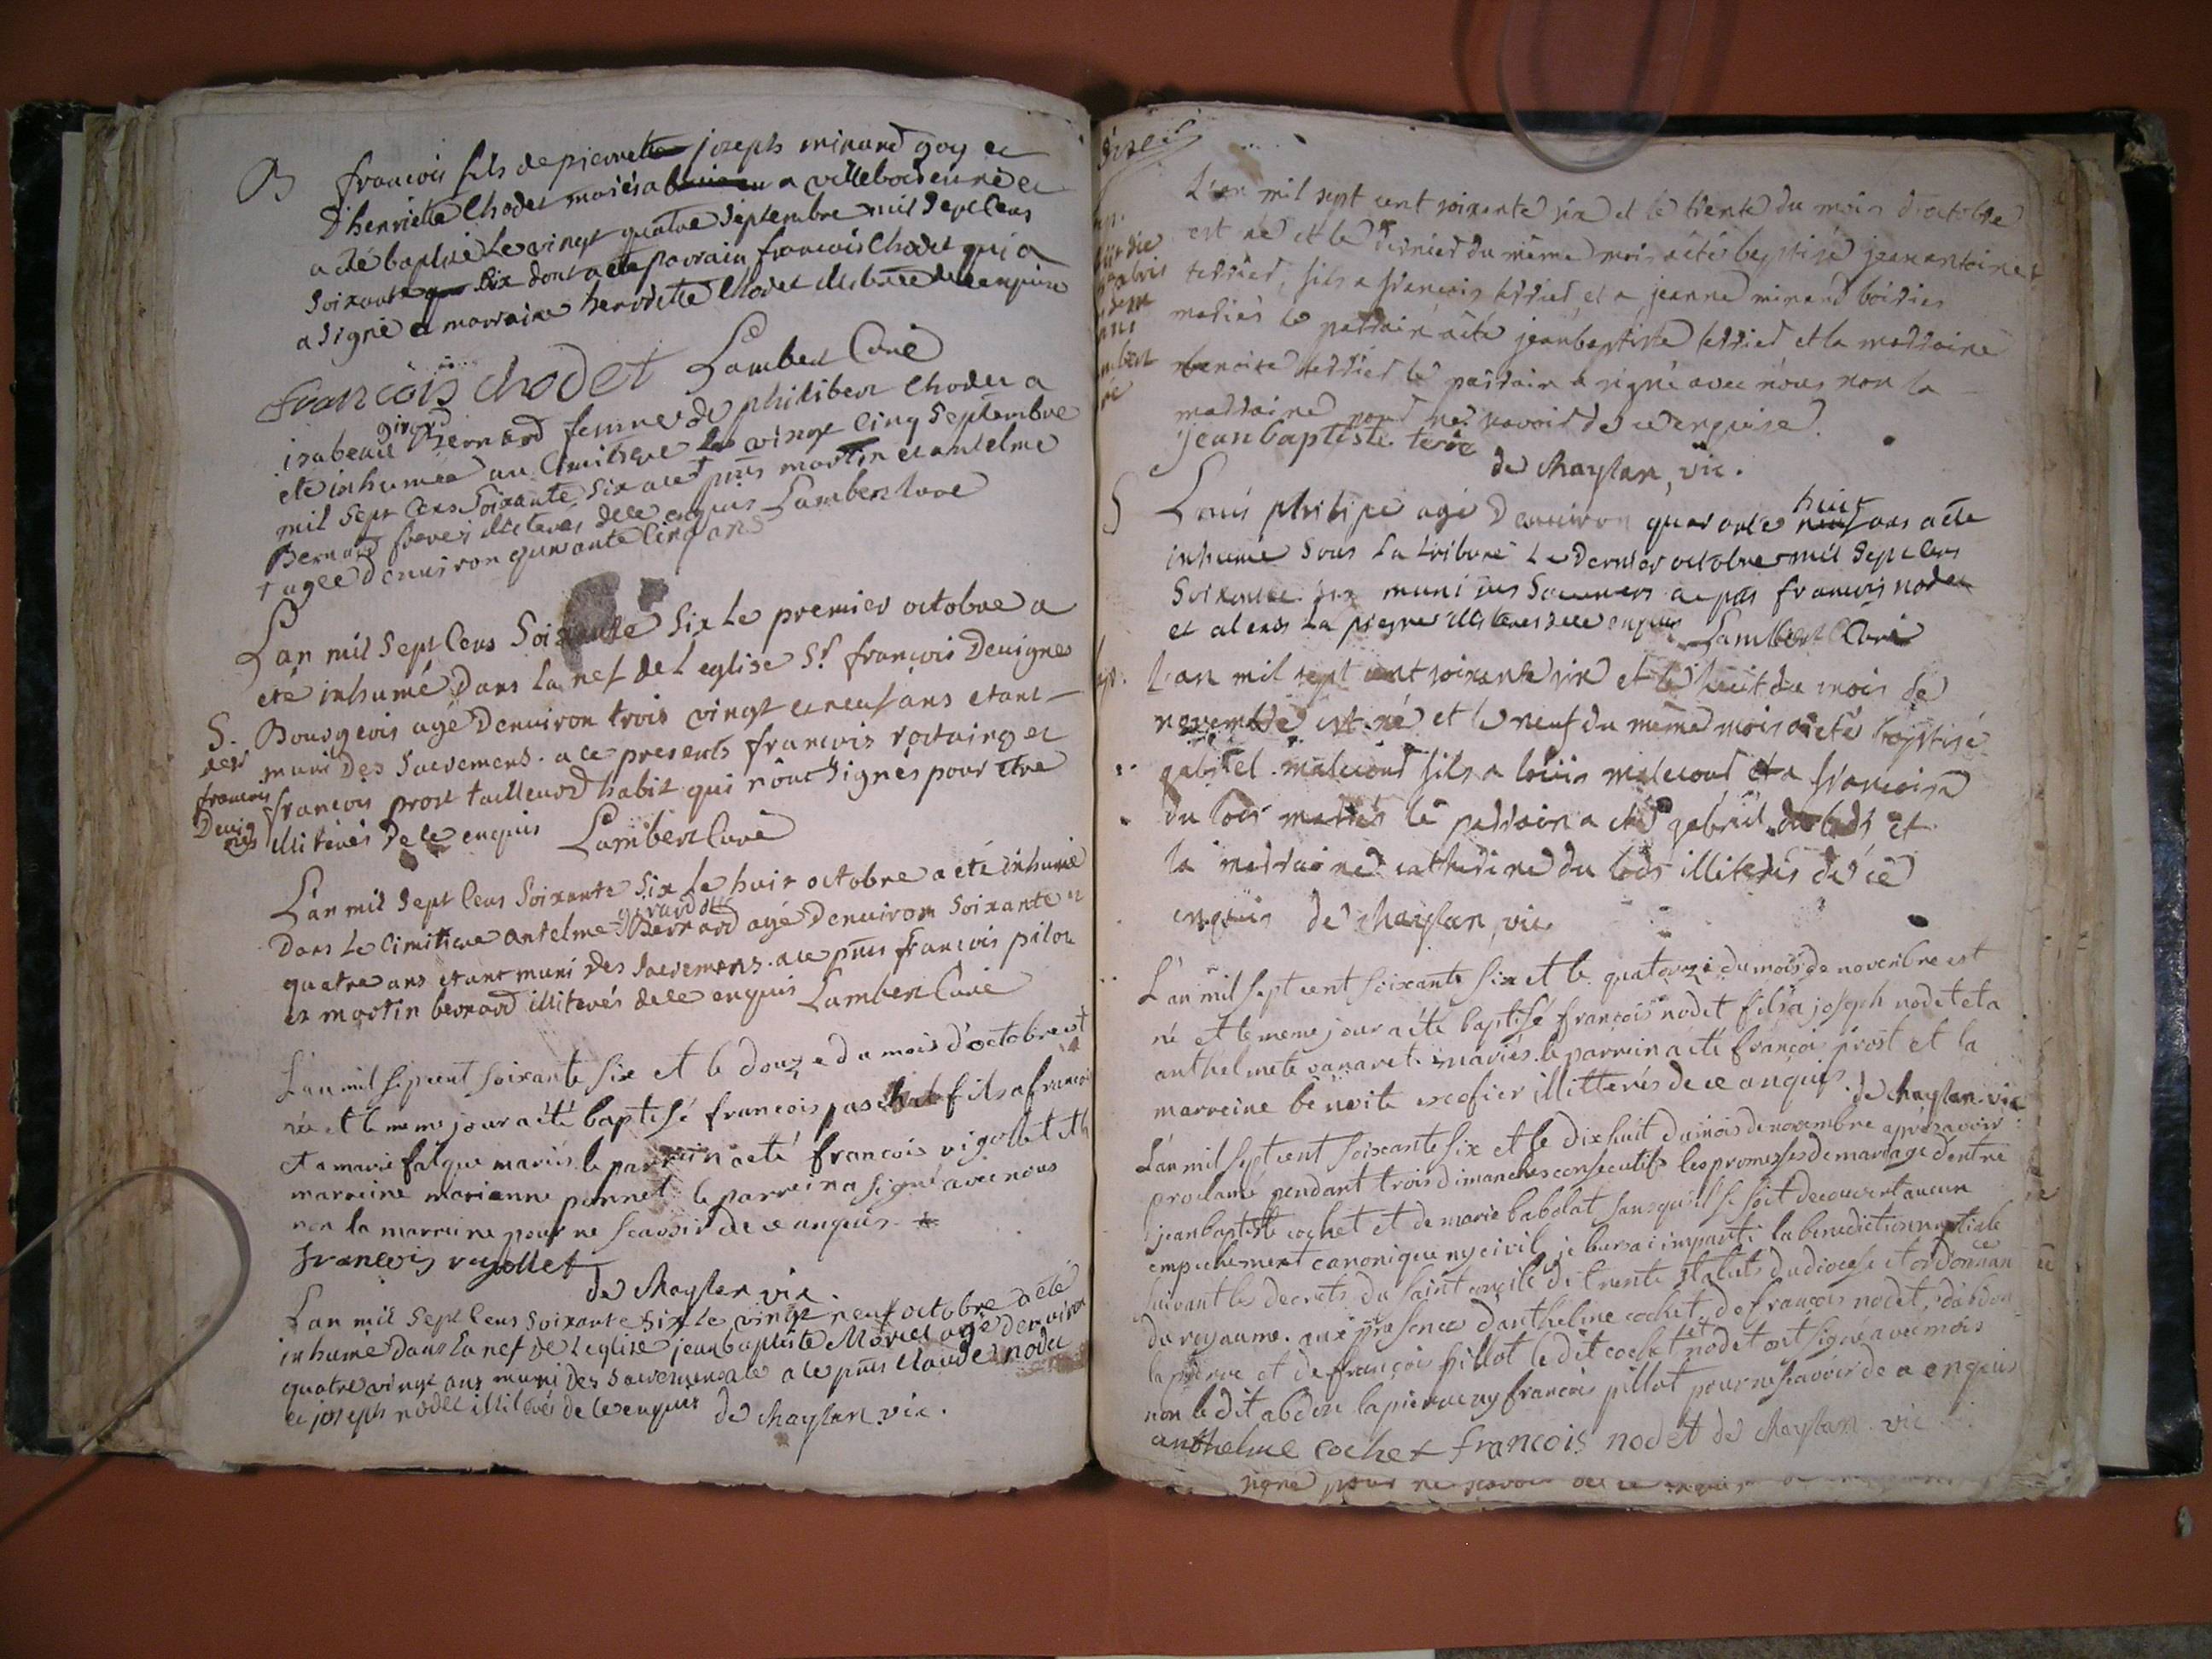 B françois fils de pierrette joseph minand goy et
D'henriette Chodet mariés a a villebois est né et
a eté baptisé Le vingt quatre Septembre mil Sept Cens
Soixante six dont a eté parrain françois Chodet qui a
a signé et marraine henriette Chodet illiteree de ce enquise
françois chodet Lambert Curé
girord
isabeau Bernard femme de philibert Chodet a
eté inhumée au Cimitiere Le vingt Cinq Septembre
mil Sept Cens Soixante Six a ce pñs martin et antelme
Bernard freres illiterés de ce enquis Lambert Curé
† agée d'environ quarante Cinq ans
L'an mil Sept Cens Soixante Six Le premier octobre a
eté inhumé Dans La nef de L'eglise Sr. françois Devignes
S. Bourgeois agé D'environ trois vingt et neuf ans etant
der muni Des Sacremens. a ce presents françois rostaing et
françois françois prost tailleur d'habit qui n'ont Signés pour etre
Devignes illiterés De ce enquis Lambert Curé
L'an mil Sept Cens Soixante Six Le huit octobre a eté inhumé
girard dit
Dans Le Cimitiere antelme Bernard agé D'environ Soixante et
quatre ans etant muni Des Sacremens. a ce pñs françois pilot
et martin bernard illiterés de ce enquis Lambert Curé
L'an mil sept cent soixante six et le douze du mois d'octobre est
né et le meme jour a été baptisé francois fils a francois
et a marie falque mariés. le parrein a eté francois rigollet et la
marreine marianne ponnet. le parrein a signé avec nous
non la marreine pour ne scavoir de ce anquis
francois rigollet
de Chaylan vic.
L'an mil Sept Cens Soixante Six Le vingt neuf octobre a eté
inhumé dans La nef de L'eglise jean baptiste Morel agé d'environ
quatre vingt ans muni Des Sacremens a ce pñs Claude nodet
et joseph nodet illiterés de ce enquis de Chaylan vic.
L'an mil sept cent soixante six et le trente du mois d'octobre
est né et le dernier du même mois a étés baptisé jean antoine
terrier, fils a françois terrier et a jeanne minand
mariés le parrain a été jean baptiste terrier et la marraine
benoite terrier le parrain a signé avec nous non la
marraine pour ne savoir de ce enquise.
jean baptiste
de Chaylan, vic.
huit
S Louis philipe agé D'environ quarante neuf ans a eté
inhumé Sous La tribune Le Dernier octobre mil Sept Cens
Soixante Six muni des Sacremens a ce pñs francois nodet
et alexis La pierre illiterés de ce enquis Lambert Curé
L'an mil sept cent soixante six et le huit du mois de
novembre est né et le neuf du même mois a étés baptisé
gabriel malecourt fils a loüis malecourt et a françoise
du lods mariés le parrain a été gabriel du lods et
la marraine catherine du lods illiterés de ce
enquis de Chaylan, vic.
L'an mil sept cent soixante six et le quatorze du mois de novembre est
né et le meme jour a été baptisé françois nodet fils a joseph nodet et a
anthelmete vanaret mariés. le parrein a été françois prost et la
marreine benoite escofier illitterés de ce anquis. de Chaylan vic
L'an mil sept cent soixante six et le dix huit du mois de novembre aprés avoir
proclamé pendant trois dimanches consecutifs les promesses de mariage d'entre
jean baptiste cochet et de marie babolat, sans qu'il se soit decouvert aucun
empechement canonique ny civil, je leur ai imparti la benediction nuptiale
suivant les decrets du saint concile de trente statuts du diocese et ordonnance
du royaume. aux presences d'anthelme cochet, de françois nodet, d'abdon
la pierre et de françois pillot le dit cochet et nodet ont signé avec nous
non le dit abdon lapierre ny francois pillot pour ne scavoir de ce enquis
anthelme cochet francois nodet de Chaylan vic
signé pour ne scavoir de ce enquis